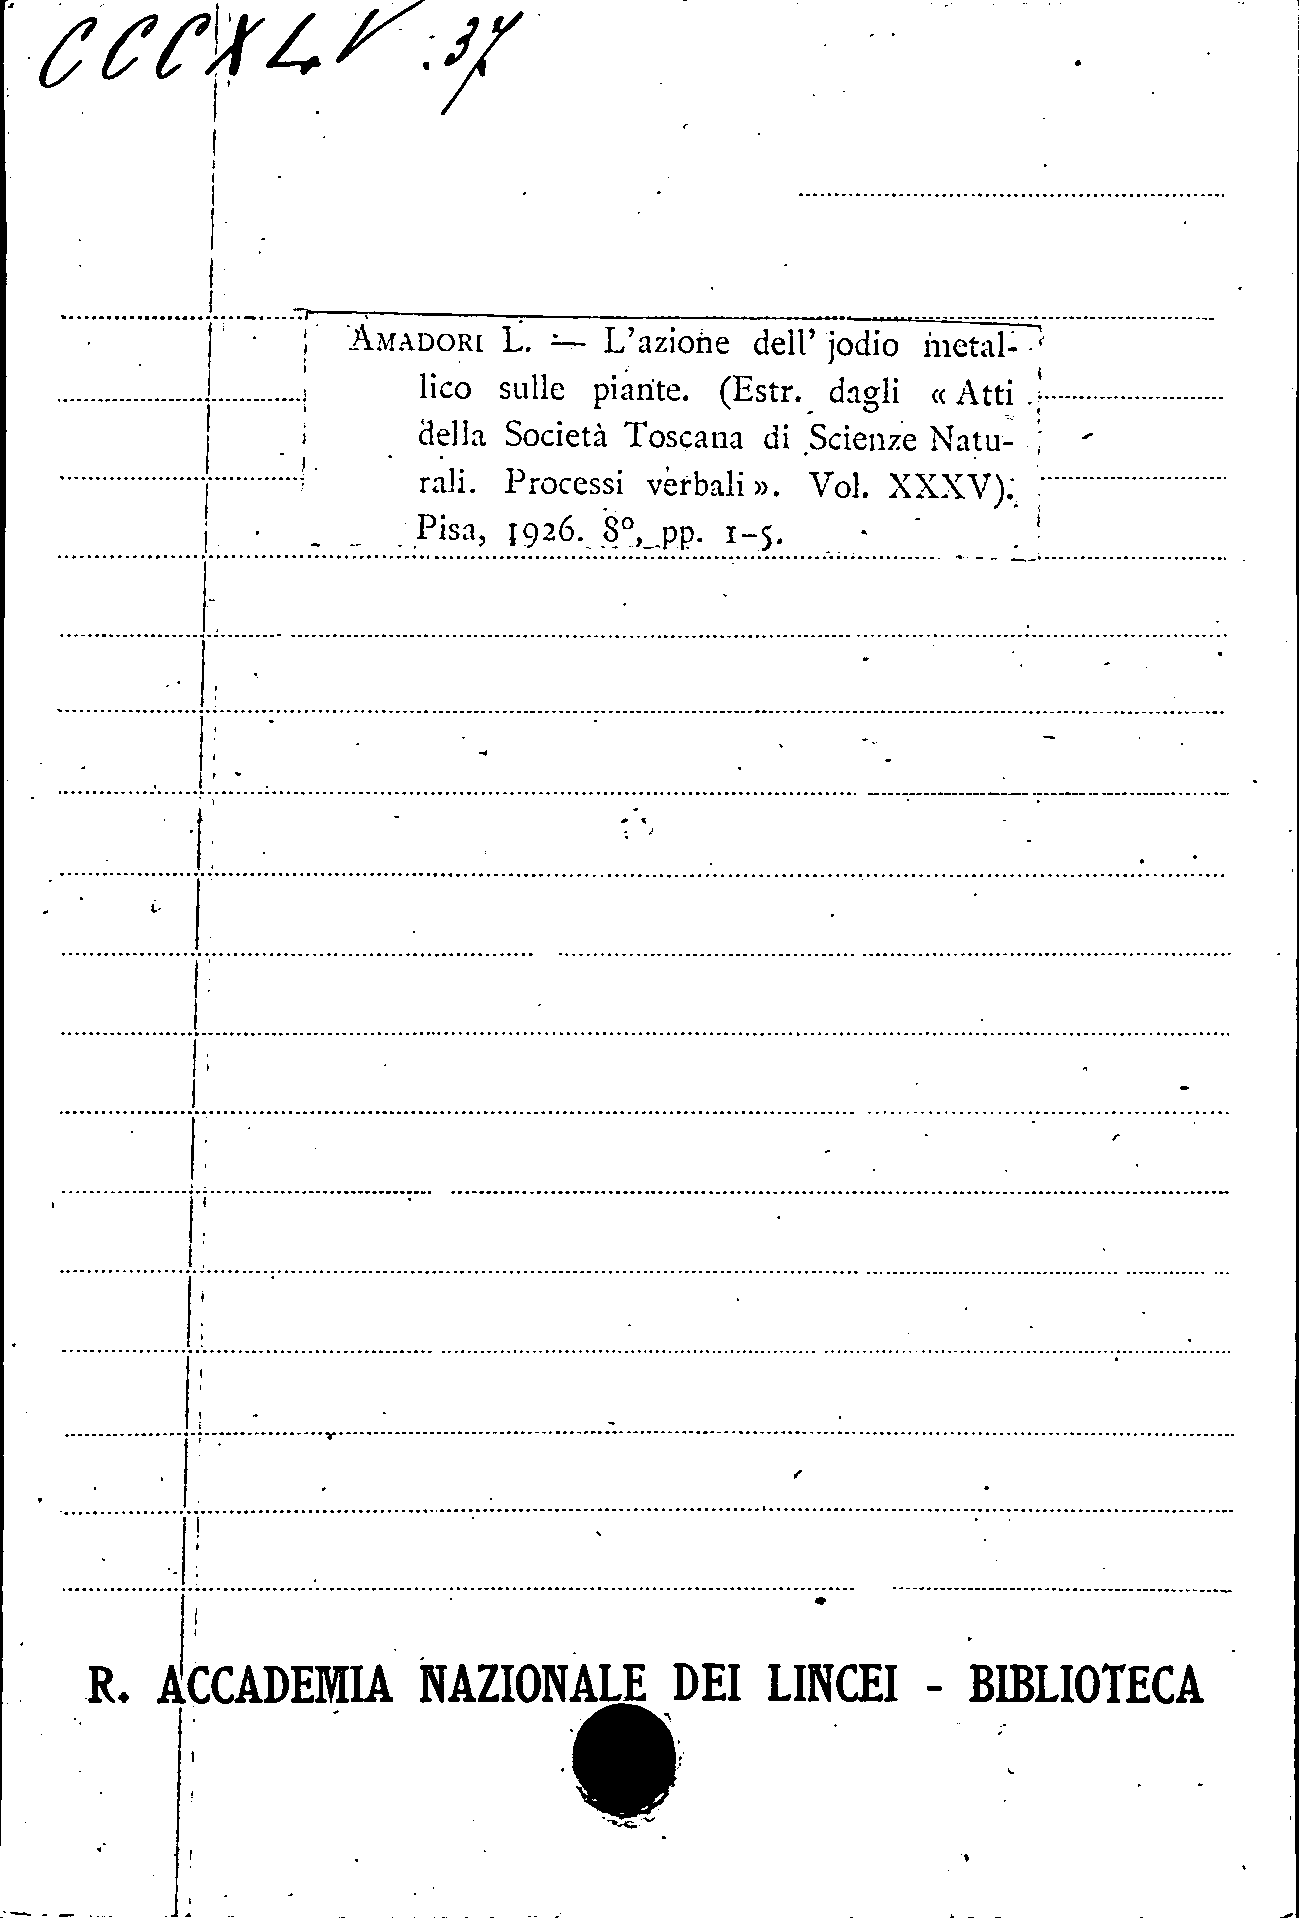 CCCXLV. 37
AMADORI L. — L'azione dell' jodio metal-
lico sulle piante. (Estr. dagli « Atti
della Società Toscana di Scienze Natu-
rali. Processi verbali ». Vol. XXXV).
Pisa, 1926. 8º, pp. 1-5.
R. ACCADEMIA NAZIONALE DEI LINCEI - BIBLIOTECA